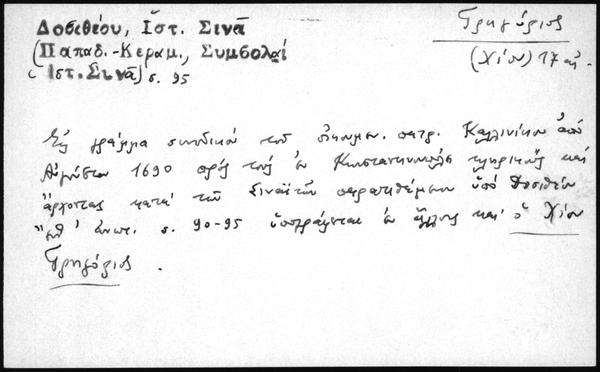 Δοσιθέου, Ἱστ. Σινᾶ
(Παπαδ.-Κεραμ., Συμβολαί
Ἱστ. Σινᾶ) σ. 95
Γρηγόριος
(Χίου) 17 αἰ.
Εἰς γράμμα συνοδικόν τοῦ οἰκουμεν. πατρ. Καλλινίκου ἀπό
Αὐγούστου 1690 πρός τούς ἐν Κωνσταντινουπόλει κληρικούς καί
ἄρχοντας κατά τῶν Σιναϊτῶν παρατιθέμενον ὑπό Δοσιθέου
ἀνωτ. σ. 90-95 ὑπογράφεται ἐν ἄλλοις καί ὁ Χίου
Γρηγόριος.